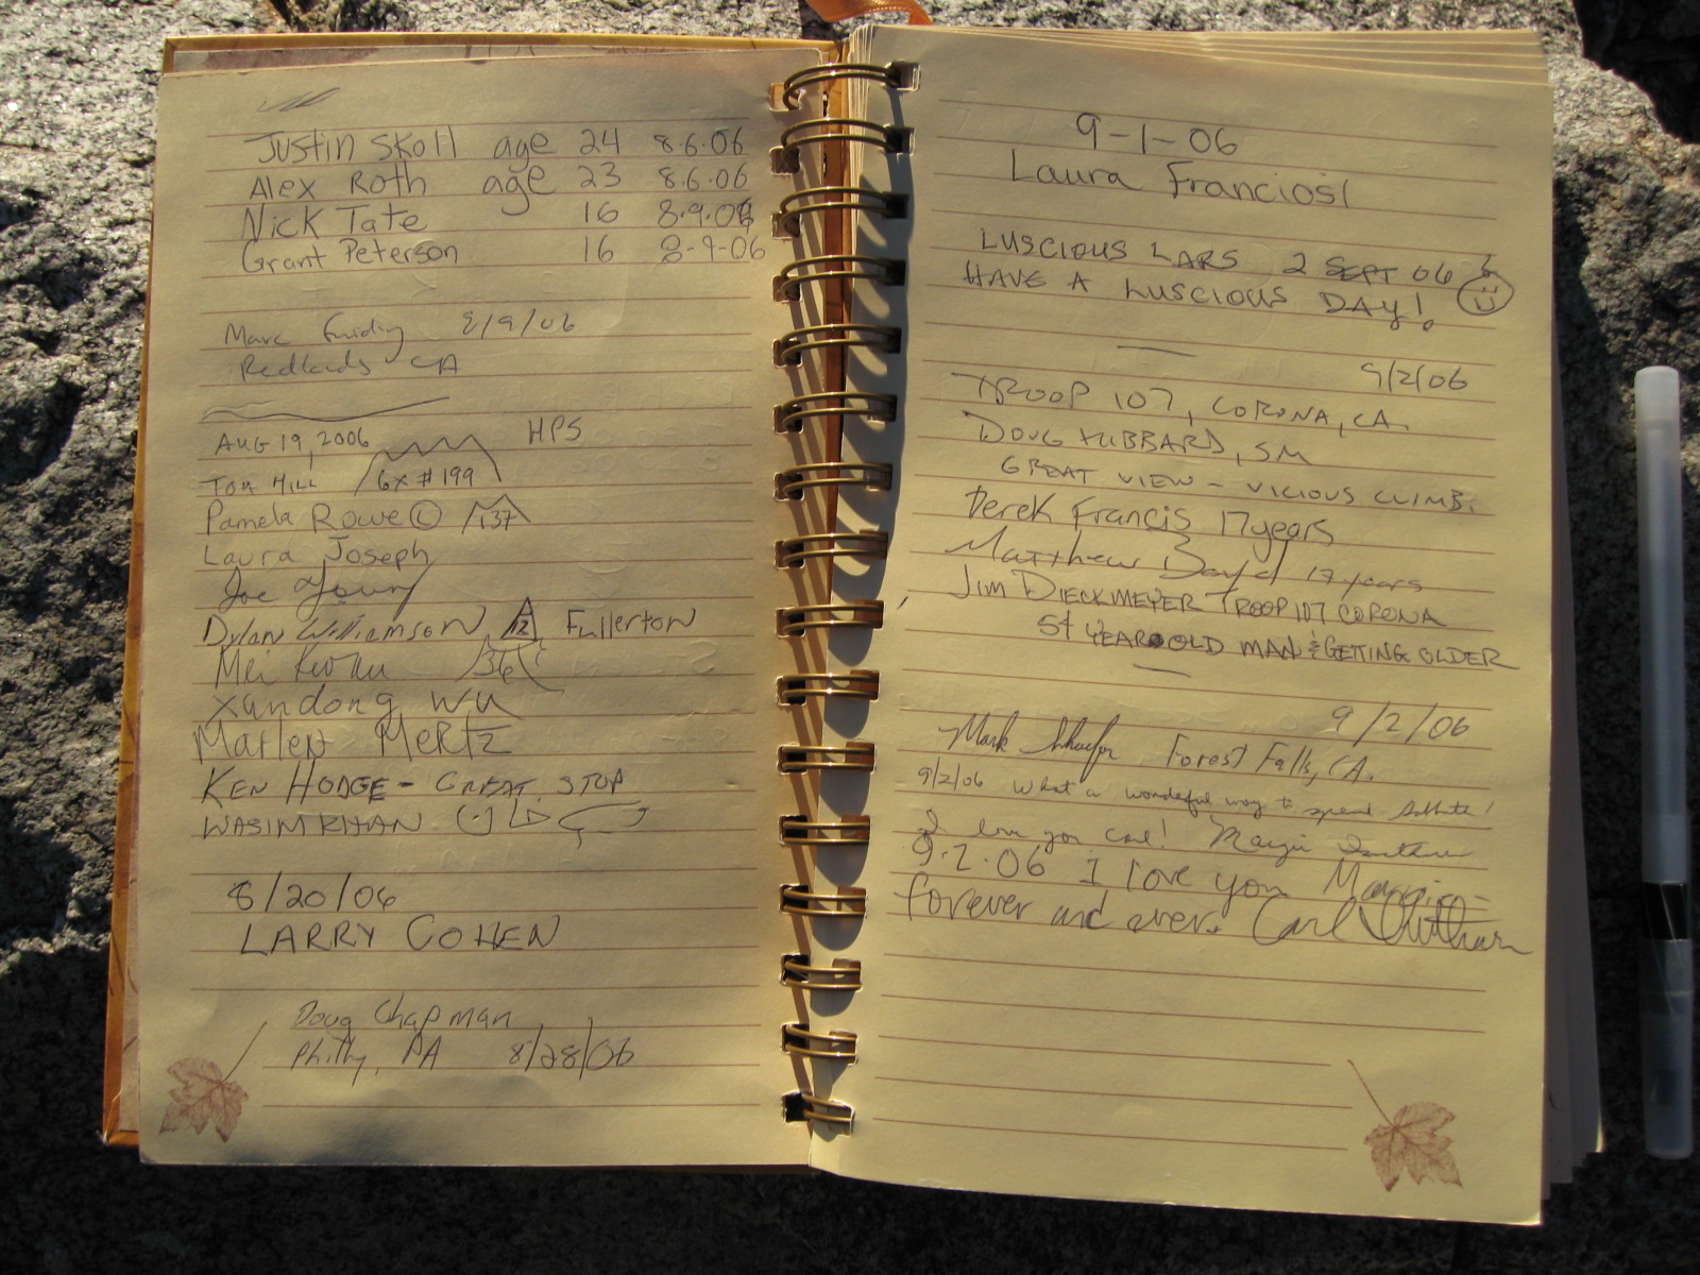 Justin Skoll age 24 8.6.06
Alex Roth age 23 8.6.06
Nick Tate 16 8.9.06
Grant Peterson 16 8-9-06
Marc 8/9/06
Redlands CA
AUG 19, 2006 HPS
TOM HILL 6x #199
Pamela Rowe © 137
Laura Joseph
Joe Young
Dylan Williamson 12 Fullerton
Mei Kwan 36
Xundong Wu
Marlen Mertz
KEN HODGE - GREAT STOP
WASIM KHAN
8/20/06
LARRY COHEN
Doug Chapman
Philly, PA 8/28/06
9-1-06
Laura Franciosi
LUSCIOUS LARS 2 SEPT 06
HAVE A LUSCIOUS DAY!
9/2/06
TROOP 107, CORONA, CA.
DOUG HUBBARD, SM
GREAT VIEW - VICIOUS CLIMB.
Derek Francis 17 years
Matthew Boyd 17 years
JIM DIECKMEYER TROOP 107 CORONA
54 YEAR OLD MAN & GETTING OLDER
9/2/06
Mark Shaefer Forest Falls, CA.
9/2/06 What a wonderful way to spend Sabbath!
I love you Carl! Margie
9.2.06 I love you Margie -
forever and ever. Carl